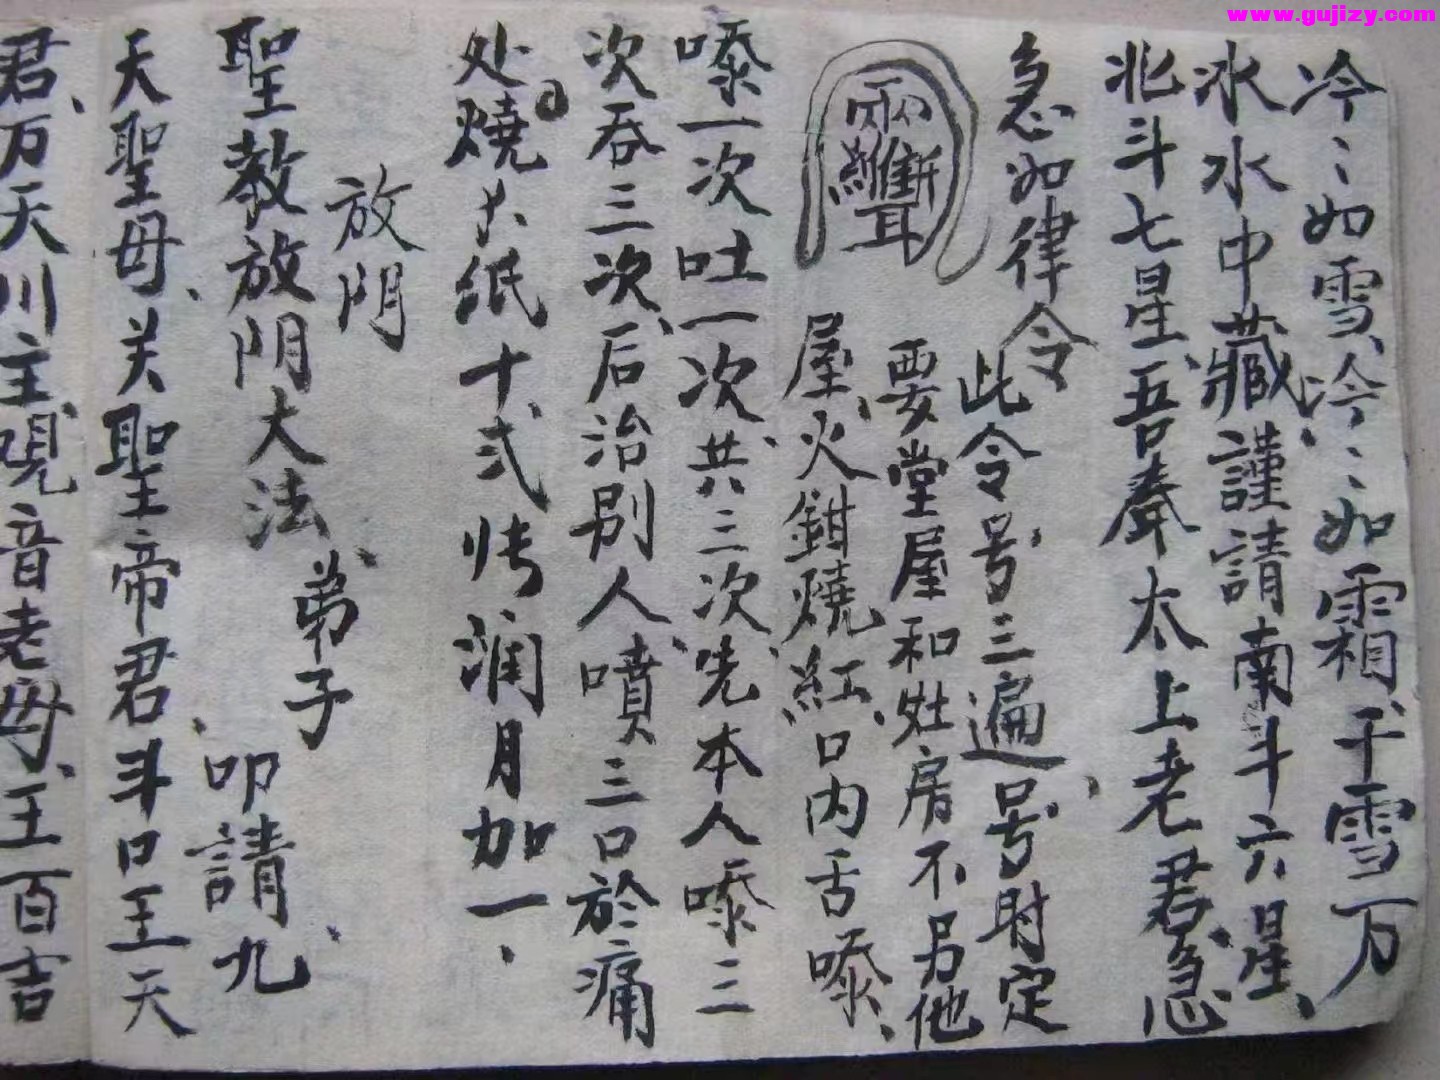 www.gujizy.com
冷〻如雪、冷〻如霜、千雪万
冰水中藏、謹請南斗六星、
北斗七星、吾奉太上老君急
急如律令
此令号三遍、号时定
要堂屋和灶房不另他
屋、火鉗燒紅、口内舌嚓、
嚓一次吐一次、共三次、先本人嚓三
次吞三次、后治别人、噴三口於痛
处、燒大紙十弍张润月加一、
放阴
聖教放阴大法、弟子、叩請九
天聖母、关聖帝君、斗口王天
君、万天川主、覌音老母、王百吉